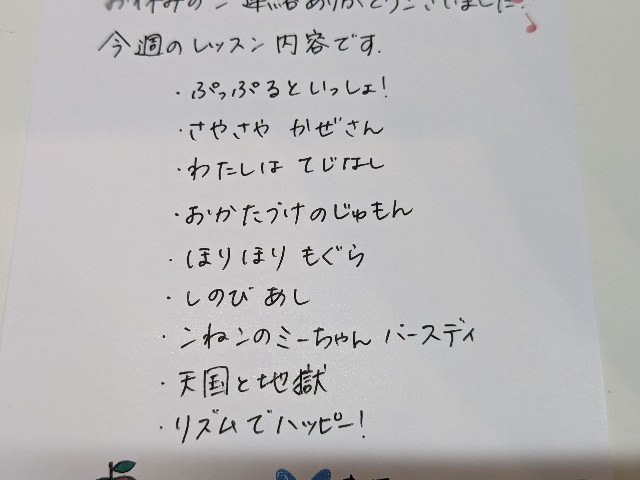 お休みのご連絡ありがとうございました!
今週のレッスン内容です.
・ぷっぷるといっしょ!
・さやさや かぜさん
・わたしは てじはし
・おかたづけのじゅもん
・ほりほり もぐら
・しのび あし
・こねこのミーちゃん バースディ
・天国と地獄
・リズムでハッピー!